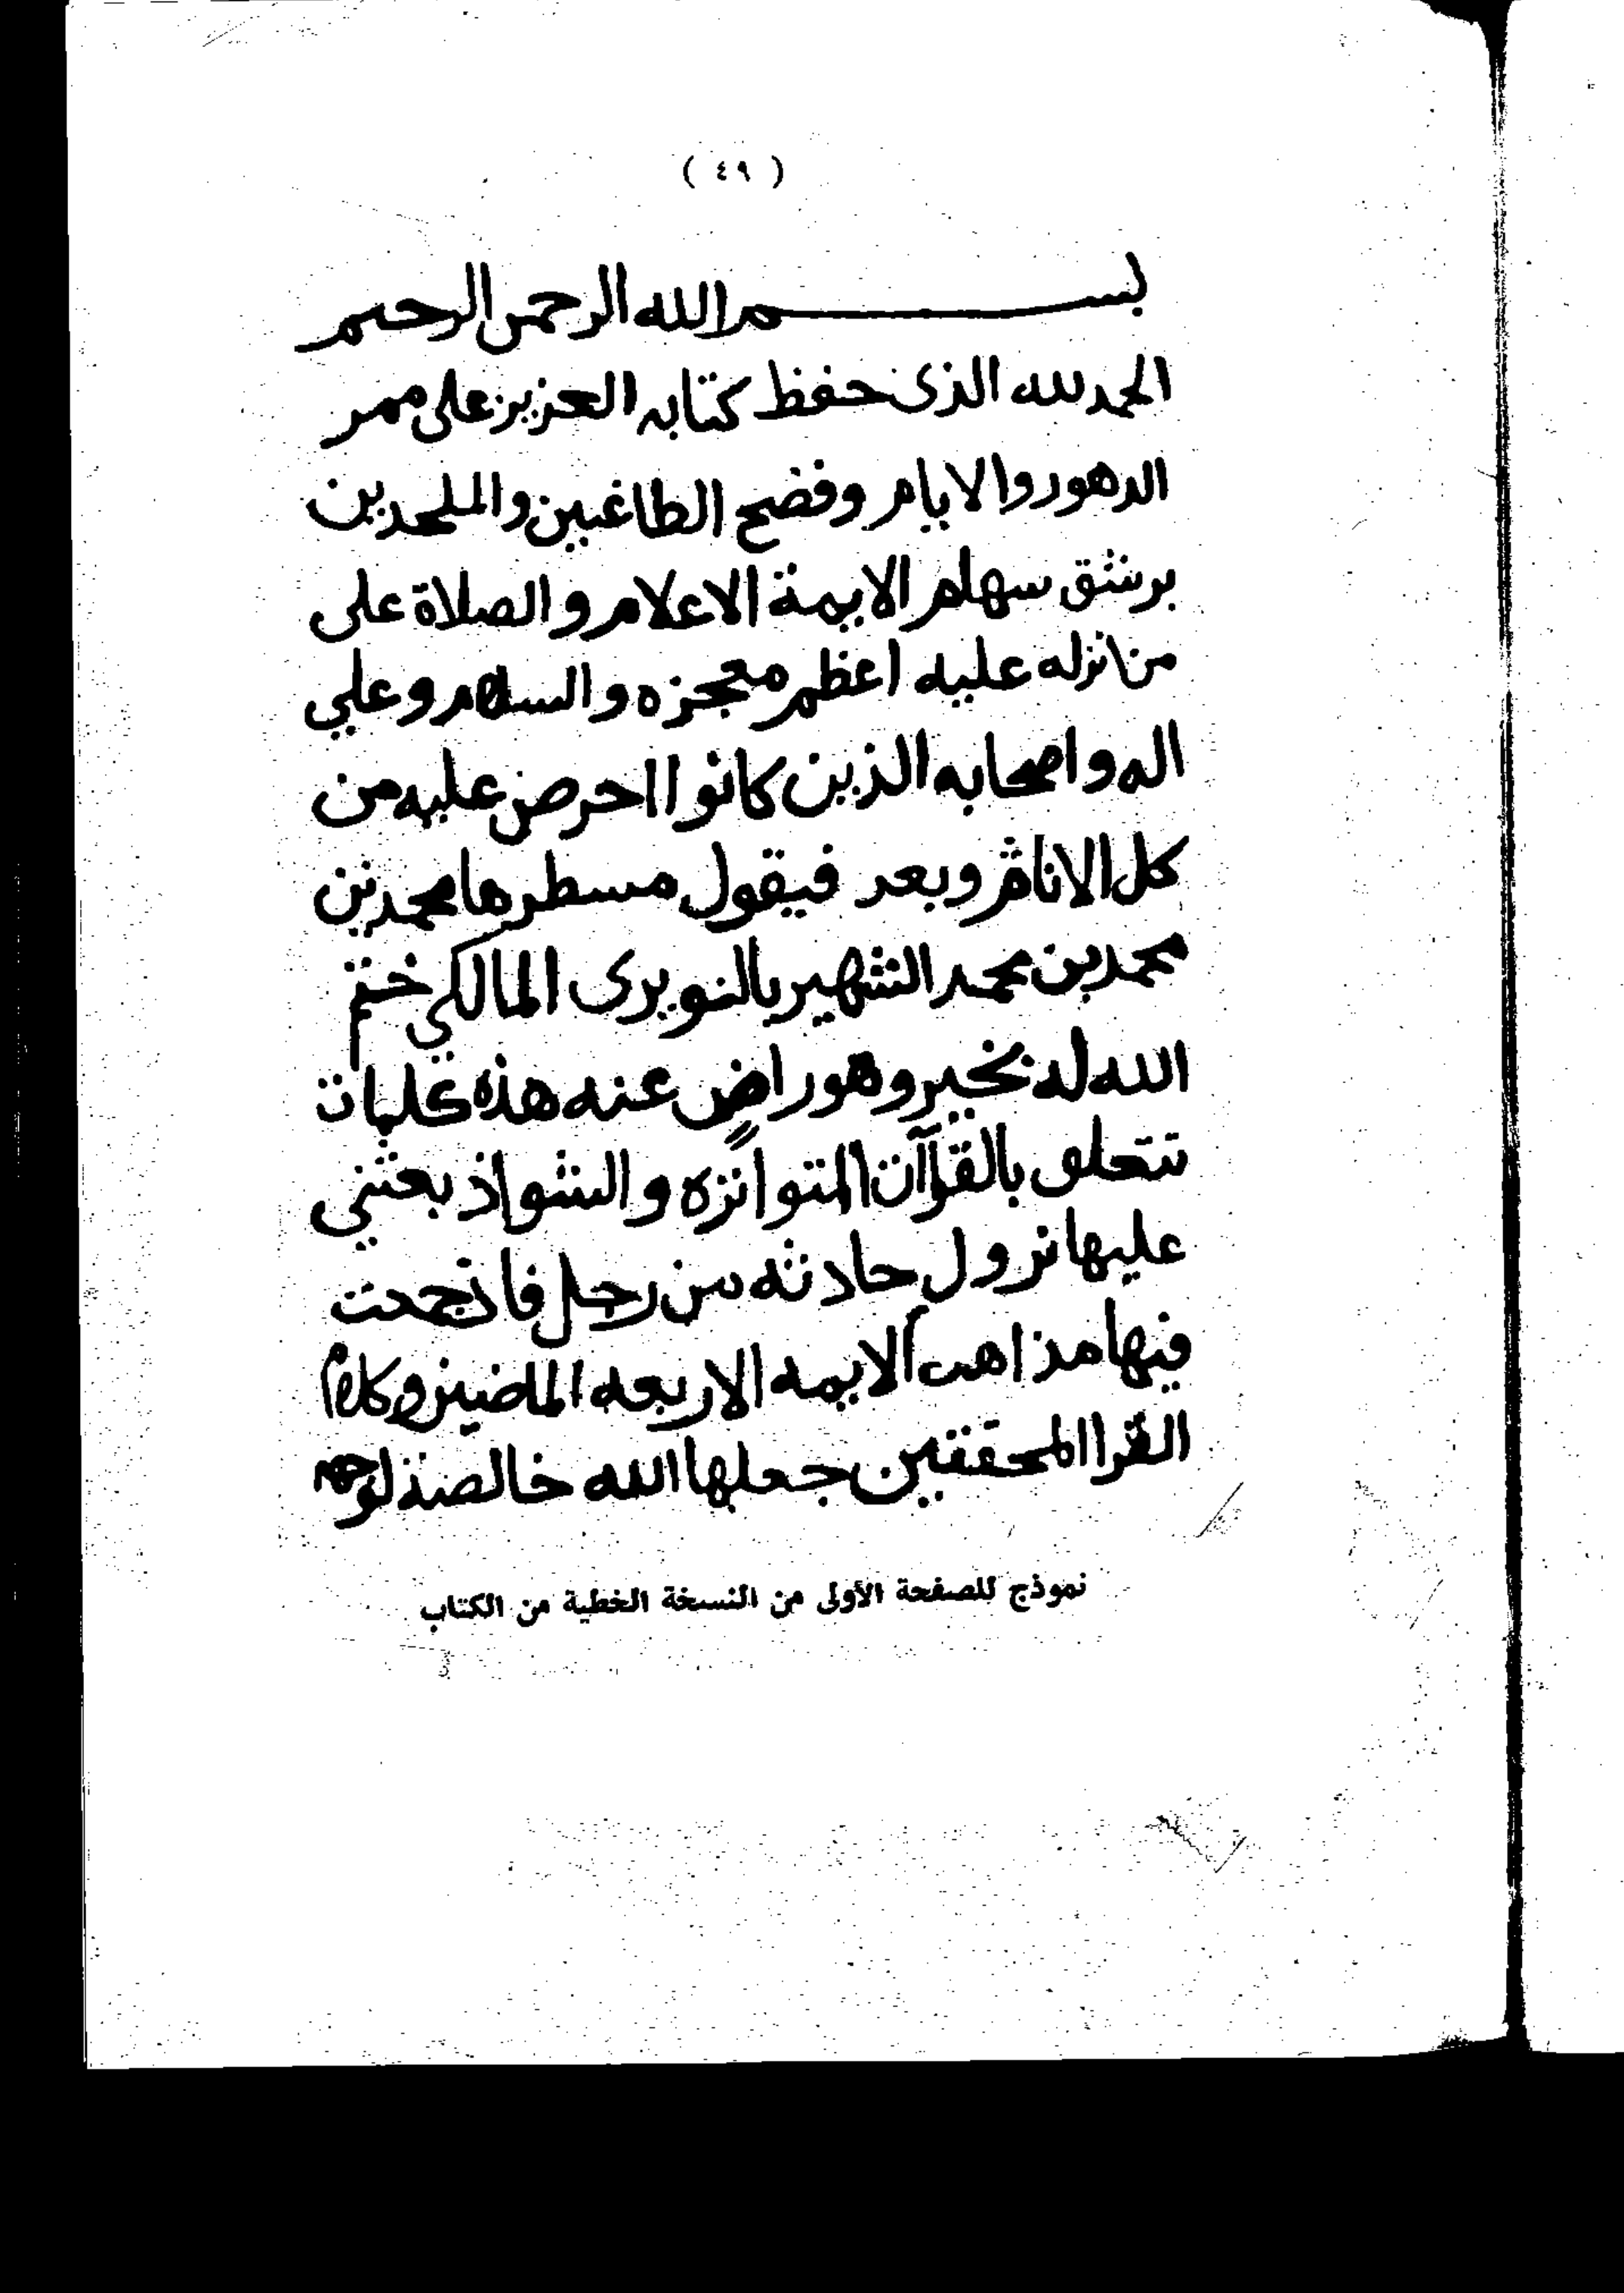 ( ٤٩ )
بسم الله الرحمن الرحيم
الحمد لله الذى حفظ كتابه العزيز على ممر
الدهور والايام وفضح الطاغين والملحدين
برشق سهام الايمة الاعلام والصلاة على
من انزله عليه اعظم معجزه والسلام وعلي
اله واصحابه الذين كانوا احرص عليه من
كل الانام وبعد فيقول مسطرها محمد بن
محمد بن محمد الشهير بالنويرى المالكي ختم
الله له بخير وهو راضٍ عنه هذه كلمات
تتعلق بالقرآن المتواتره والشواذ بعثني
عليها نزول حادثه من رجل فاذجحت
فيها مذاهب الايمه الاربعه الماضين وكلام
القرا المحققين جعلها الله خالصة لوجهه
نموذج للصفحة الأولى من النسخة الخطية من الكتاب